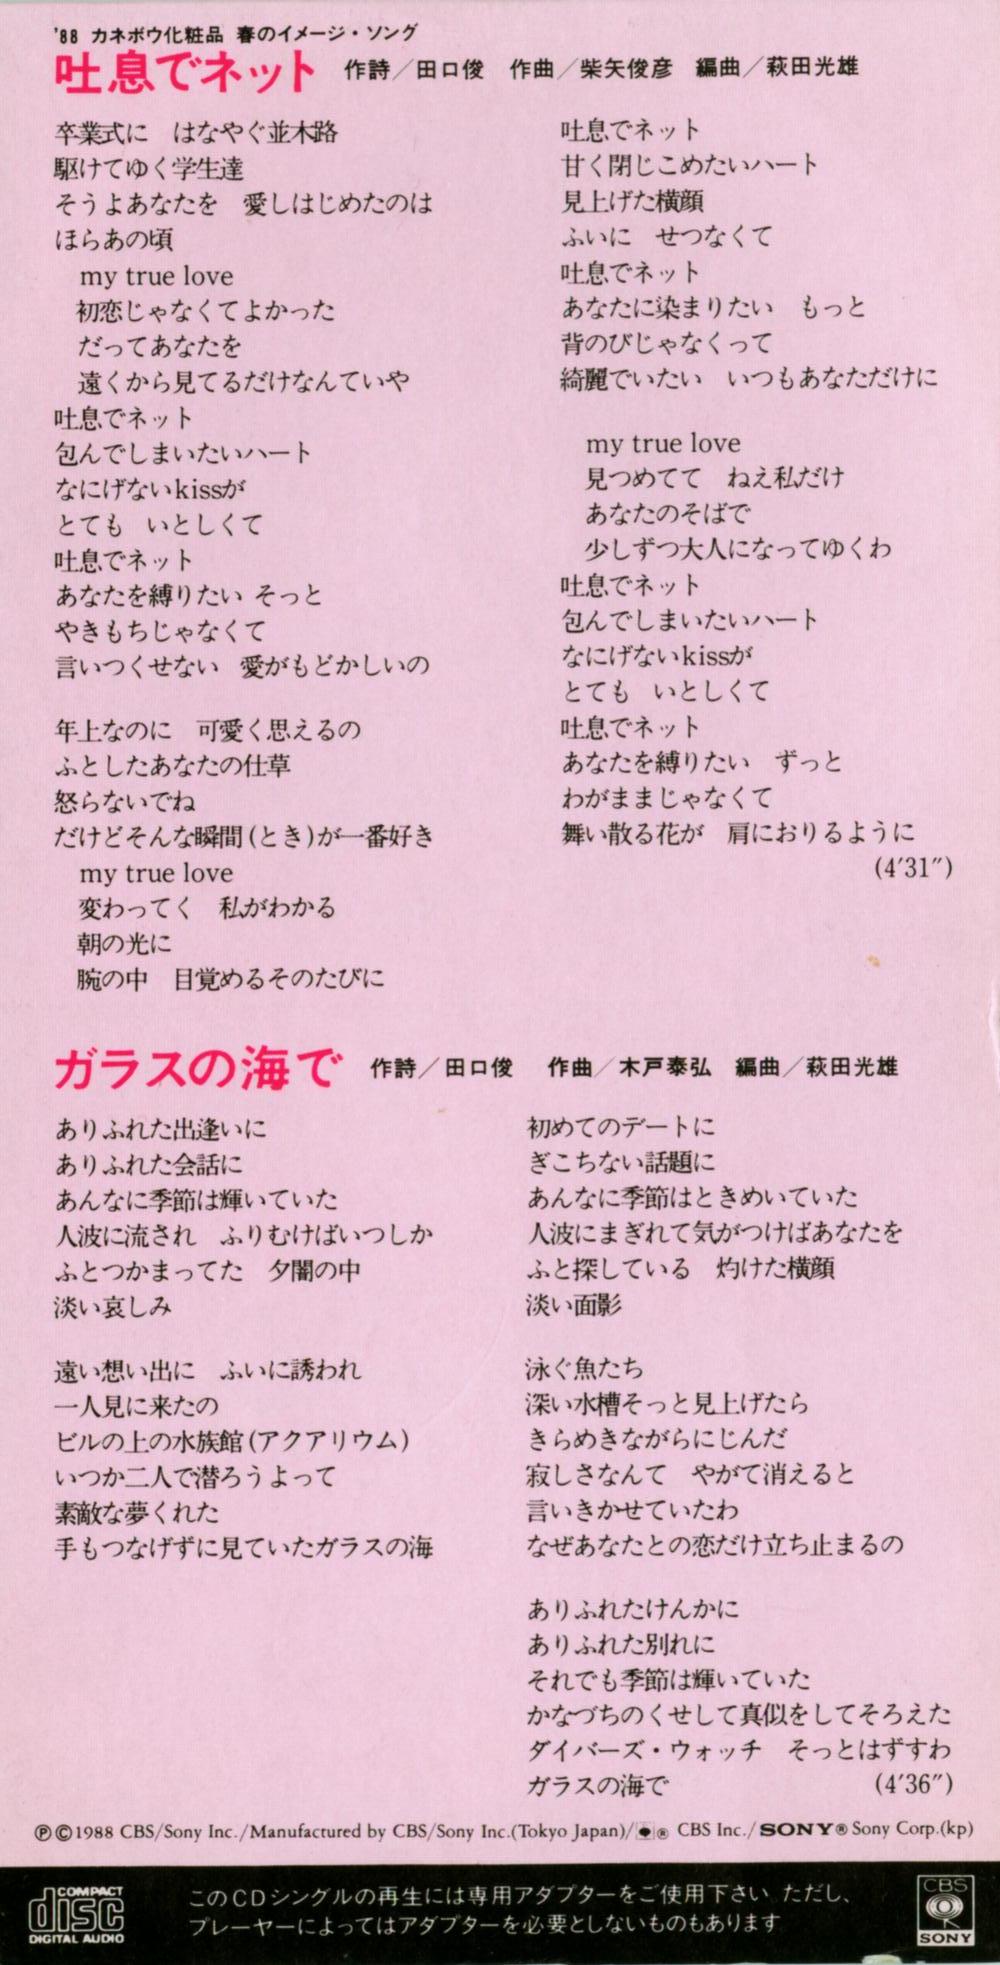 '88 カネボウ化粧品 春のイメージ・ソング
吐息でネット 作詩／田口俊 作曲／柴矢俊彦 編曲／萩田光雄
卒業式に はなやぐ並木路
駆けてゆく学生達
そうよあなたを 愛しはじめたのは
ほらあの頃
my true love
初恋じゃなくてよかった
だってあなたを
遠くから見てるだけなんていや
吐息でネット
包んでしまいたいハート
なにげないkissが
とても いとしくて
吐息でネット
あなたを縛りたい そっと
やきもちじゃなくて
言いつくせない 愛がもどかしいの
年上なのに 可愛く思えるの
ふとしたあなたの仕草
怒らないでね
だけどそんな瞬間(とき)が一番好き
my true love
変わってく 私がわかる
朝の光に
腕の中 目覚めるそのたびに
吐息でネット
甘く閉じこめたいハート
見上げた横顔
ふいに せつなくて
吐息でネット
あなたに染まりたい もっと
背のびじゃなくって
綺麗でいたい いつもあなただけに
my true love
見つめてて ねえ私だけ
あなたのそばで
少しずつ大人になってゆくわ
吐息でネット
包んでしまいたいハート
なにげないkissが
とても いとしくて
吐息でネット
あなたを縛りたい ずっと
わがままじゃなくて
舞い散る花が 肩におりるように
(4′31″)
ガラスの海で 作詩／田口俊 作曲／木戸泰弘 編曲／萩田光雄
ありふれた出逢いに
ありふれた会話に
あんなに季節は輝いていた
人波に流され ふりむけばいつしか
ふとつかまってた 夕闇の中
淡い哀しみ
遠い想い出に ふいに誘われ
一人見に来たの
ビルの上の水族館(アクアリウム)
いつか二人で潜ろうよって
素敵な夢くれた
手もつなげずに見ていたガラスの海
初めてのデートに
ぎこちない話題に
あんなに季節はときめいていた
人波にまぎれて気がつけばあなたを
ふと探している 灼けた横顔
淡い面影
泳ぐ魚たち
深い水槽そっと見上げたら
きらめきながらにじんだ
寂しさなんて やがて消えると
言いきかせていたわ
なぜあなたとの恋だけ立ち止まるの
ありふれたけんかに
ありふれた別れに
それでも季節は輝いていた
かなづちのくせして真似をしてそろえた
ダイバーズ・ウォッチ そっとはずすわ
ガラスの海で (4′36″)
℗©1988 CBS/Sony Inc./Manufactured by CBS/Sony Inc.(Tokyo Japan)/® CBS Inc./SONY® Sony Corp.(kp)
COMPACT
disc
DIGITAL AUDIO
このCDシングルの再生には専用アダプターをご使用下さい。ただし、
プレーヤーによってはアダプターを必要としないものもあります。
CBS
SONY